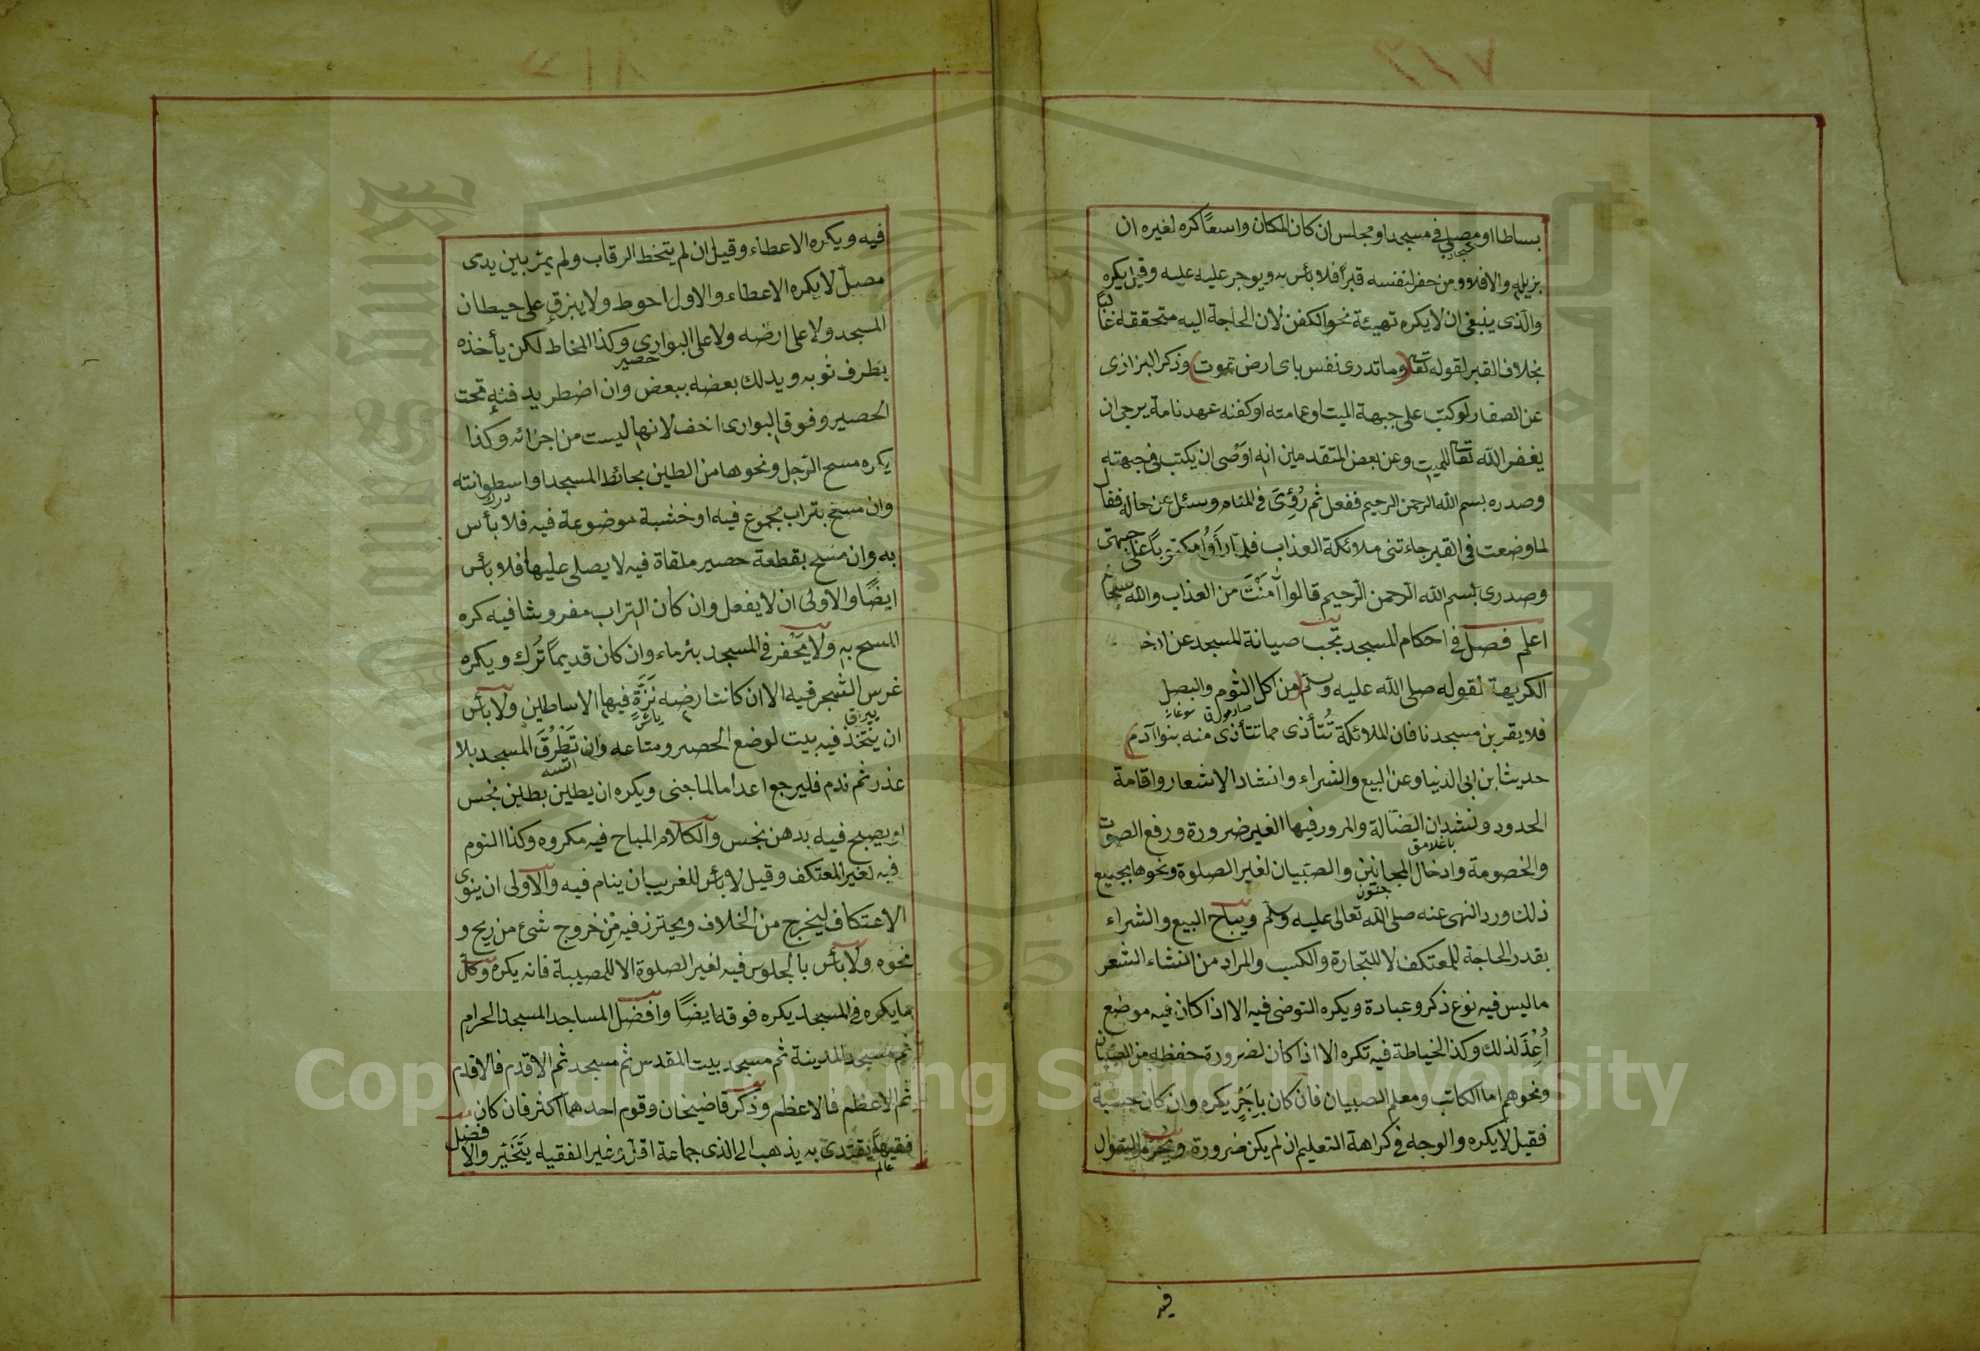 بساطا او مصلى في مسجد او مجلس ان كان المكان واسعًا كره لغيره ان
سجاده
يزيله والا فلا ومن حفر لنفسه قبرًا فلا بأس به ويوجر عليه وقيل يكره
والذى ينبغى ان لا يكره تهيئة نحو الكفن لان الحاجة اليه متحققة غالبا
بخلاف القبر لقوله تعا (وما تدرى نفس باى ارض تموت) وذكر البزازى
عن الصفار لو كتب على جبهة الميت او عمامته او كفنه عهد نامة يرجى ان
يغفر الله تعا للميت وعن بعض المتقدمين انه اوصى ان يكتب في جبهته
وصدره بسم الله الرحمن الرحيم ففعل ثم رُؤى في المنام وسئل عن حاله فقال
لما وضعت في القبر جاءتنى ملائكة العذاب فلما رَأَوا مكتوباً على جبهتى
وصدرى بسم الله الرحمن الرحيم قالوا أمنتَ من العذاب والله سبحا
اعلم فصل في احكام المسجد تجب صيانة المسجد عن
الكريهة لقوله صلى الله عليه وسلم (من اكل الثوم والبصل
صارمساق سوغان
فلا يقربن مسجدنا فان الملائكة تتأذى مما تتأذى منه بنوا آدم)
حديث ابن ابى الدنيا وعن البيع والشراء وانشاد الاشعار واقامة
الحدود ونشدان الضالة والمرور فيها الغير ضرورة ورفع الصوت
والخصومة وادخال المجانين والصبيان لغير الصلوة ونحوها بجميع
جنون
ذلك ورد النهى عنه صلى الله تعالى عليه وسلم ويباح البيع والشراء
بقدر الحاجة للمعتكف لا للتجارة والكسب والمراد من انشاء الشعر
ما ليس فيه نوع ذكر وعبادة ويكره التوضى فيه الا اذا كان فيه موضع
أُعِدّ لذلك وكذا الخياطة فيه تكره الا اذا كان لضرورة حفظه من الصبيان
ونحوهم اما الكاتب ومعلم الصبيان فان كان باجرٍ يكره وان كان حسبة
فقيل لا يكره والوجه في كراهة التعليم ان لم يكن ضرورة ويحرم السؤال
فيه
فيه ويكره الاعطاء وقيل ان لم يتخط الرقاب ولم يمر بين يدى
مصلّ لا يكره الاعطاء والاول احوط ولا يبزق على حيطان
المسجد ولا على ارضه ولا على البوارى وكذا المخاط لكن يأخذه
حصير
بطرف ثوبه ويدلك بعضه ببعض وان اضطر يدفنه تحت
الحصير وفوق البوارى اخف لانها ليست من اجزائه وكذا
يكره مسح الرجل ونحوها من الطين بحائط المسجد او اسطوانته
وان مسح بتراب مجموع فيه او خشبة موضوعة فيه فلا بأس
به وان مسح بقطعة حصير ملقاة فيه لا يصلى عليها فلا بأس
ايضًا والاولى ان لا يفعل وان كان التراب مفروشا فيه كره
المسح به ولا يُحْفر في المسجد بئر ماء وان كان قديماً تُرك ويكره
غرس الشجر فيه الا ان كانت ارضه نَزَّة فيها الاساطين ولا بأس
ان يتخذ فيه بيت لوضع الحصير ومتاعه وان تَطَرَّقَ المسجد بلا
عذر ثم ندم فليرجع اعداما لما جنى ويكره ان يطين بطين نجس
او يصبح فيه بدهن نجس والكلام المباح فيه مكروه وكذا النوم
فيه لغير المعتكف وقيل لا بأس للغريب ان ينام فيه والاولى ان ينوى
الاعتكاف ليخرج من الخلاف ويحترز فيه من خروج شئ من ريح و
نحوه ولا بأس بالجلوس فيه لغير الصلوة الا للمصيبة فانه يكره وكل
ما يكره في المسجد يكره فوقه ايضًا وافضل المساجد المسجد الحرام
ثم مسجد المدينة ثم مسجد بيت المقدس ثم مسجد ثم الاقدم فالاقدم
ثم الاعظم فالاعظم وذكر قاضيخان وقوم احدهما اكثر فان كان
فقيهاً يقتدى به يذهب الى الذى جماعة اقل وغير الفقيه يَتَخَيّر والافضل
عالم
Copyright © King Saud University